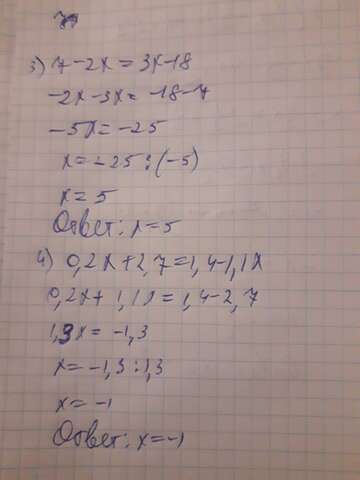 3) 7-2x=3x-18
-2x-3x=-18-7
-5x=-25
x=-25:(-5)
x=5
Ответ: x=5
4) 0,2x+2,7=1,4-1,1x
0,2x+1,1x=1,4-2,7
1,3x=-1,3
x=-1,3:1,3
x=-1
Ответ: x=-1